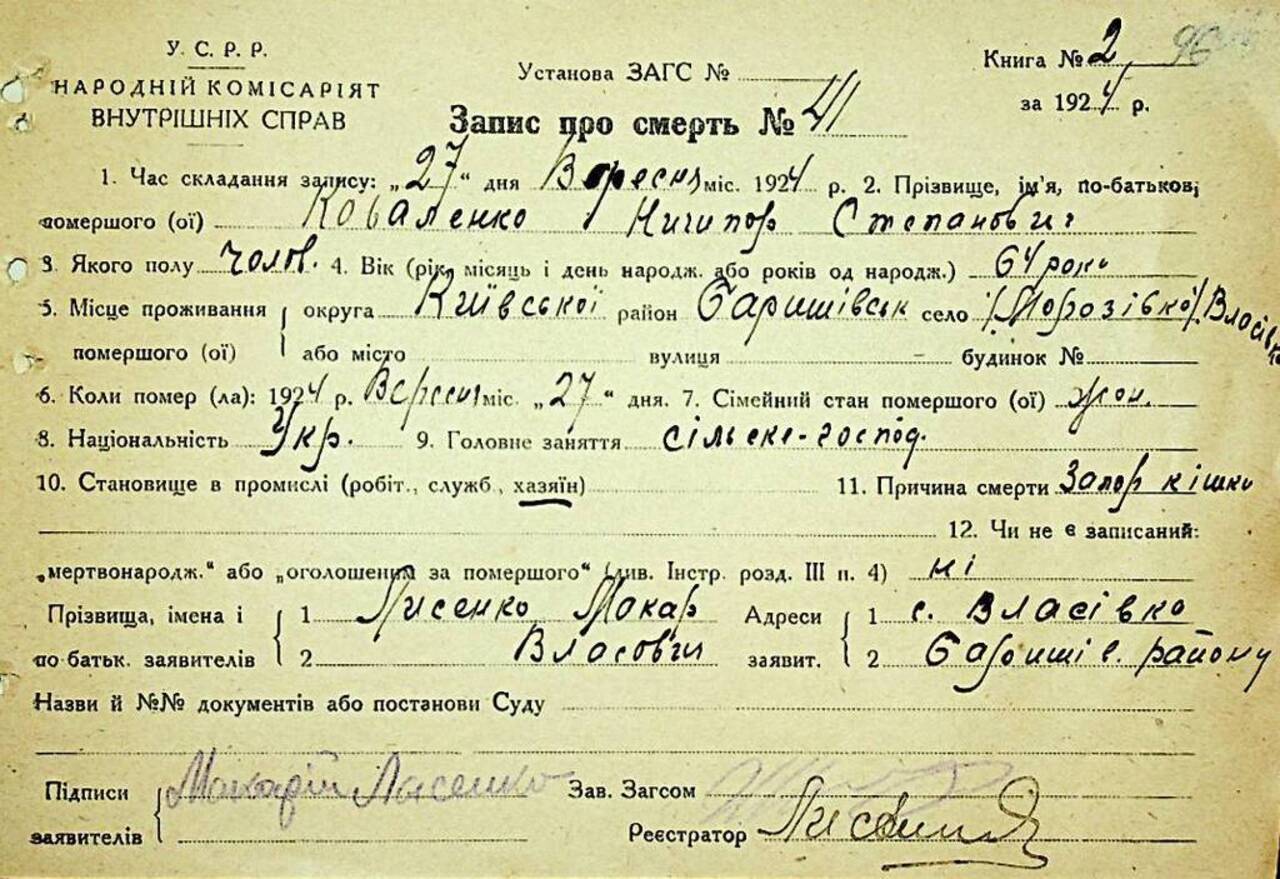 У. С. Р. Р.
НАРОДНІЙ КОМІСАРІЯТ
ВНУТРІШНІХ СПРАВ
Установа ЗАГС №
Книга № 2 96
за 1924 р.
Запис про смерть № 41
1. Час складання запису: „27“ дня Вересня міс. 1924 р. 2. Прізвище, ім'я, по-батькові
помершого (ої) Коваленко Ничипор Степанович
3. Якого полу чолов. 4. Вік (рік, місяць і день народж. або років од народж.) 64 роки
5. Місце проживання округа Київської район Баришівськ село /Морозівко/ Власівко
помершого (ої) або місто вулиця будинок №
6. Коли помер (ла): 1924 р. Вересня міс. „27“ дня. 7. Сімейний стан помершого (ої) жон.
8. Національність Укр. 9. Головне заняття сільске-господ.
10. Становище в промислі (робіт., служб., хазяїн) 11. Причина смерти Запор кішки
12. Чи не є записаний:
„мертвонародж.“ або „оголошеним за помершого“ (див. Інстр. розд. III п. 4) ні
Прізвища, імена і 1 Лисенко Макар Адреси 1 с. Власівко
по батьк. заявителів 2 Власович заявит. 2 Баришів. району
Назви й №№ документів або постанови Суду
Підписи Макарій Ласенко Зав. Загсом
заявителів Реєстратор